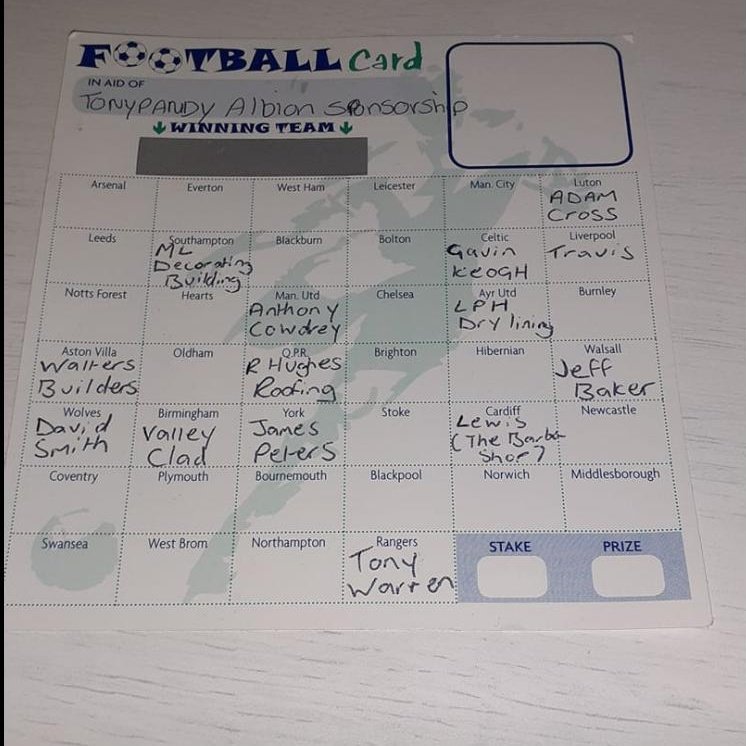 FOOTBALL Card
IN AID OF
TONYPANDY Albion Sponsorship
WINNING TEAM
Arsenal Everton West Ham Leicester Man. City Luton
ADAM
Cross
Leeds Southampton Blackburn Bolton Celtic Liverpool
ML Gavin Travis
Decorating KEOGH
Building
Notts Forest Hearts Man. Utd Chelsea Ayr Utd Burnley
Anthony LPH
Cowdrey Dry lining
Aston Villa Oldham Q.P.R. Brighton Hibernian Walsall
Walters R Hughes Jeff
Builders Roofing Baker
Wolves Birmingham York Stoke Cardiff Newcastle
David Valley James Lewis
Smith Clad Peters (The Barber
Shop)
Coventry Plymouth Bournemouth Blackpool Norwich Middlesborough
Swansea West Brom Northampton Rangers STAKE PRIZE
Tony
Warren